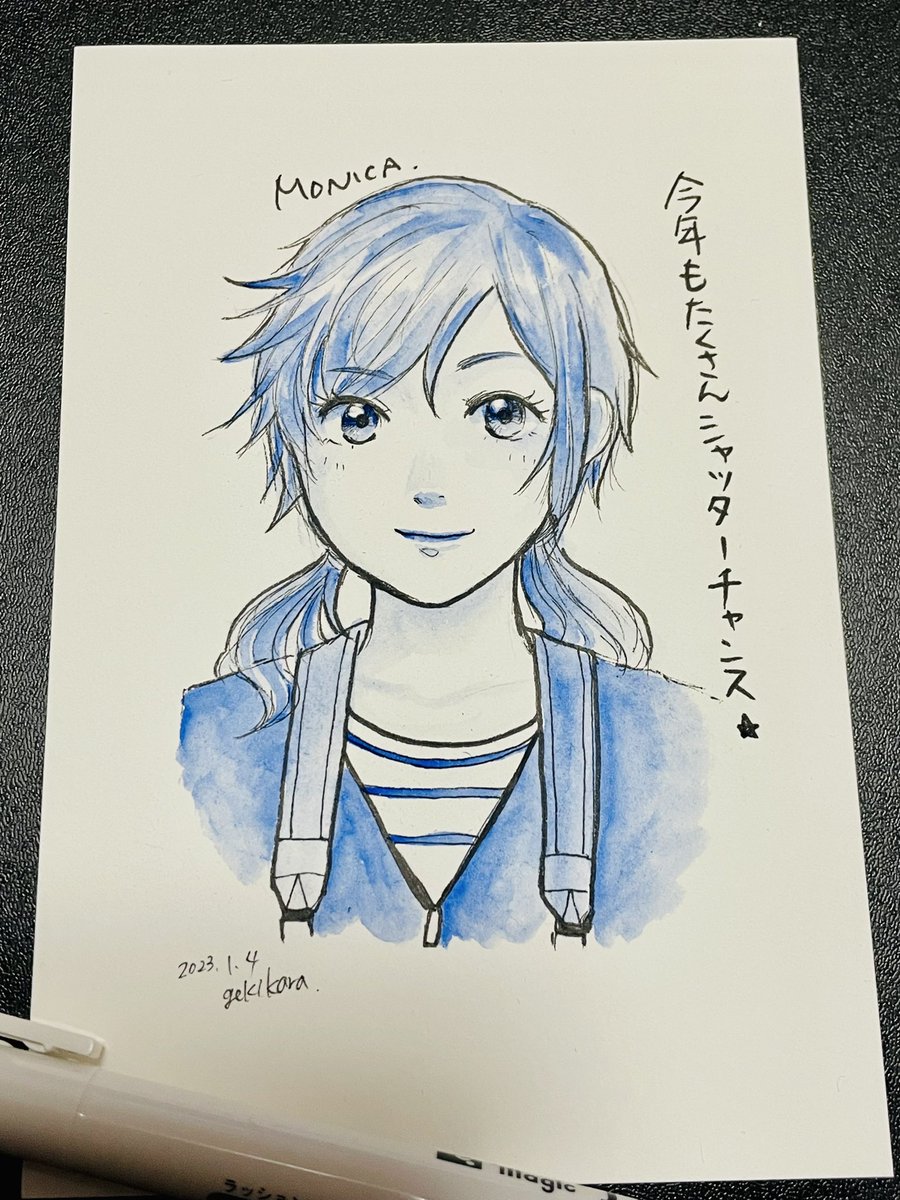 MONICA.
今年もたくさんシャッターチャンス★
2023.1.4
gekikara.
magic